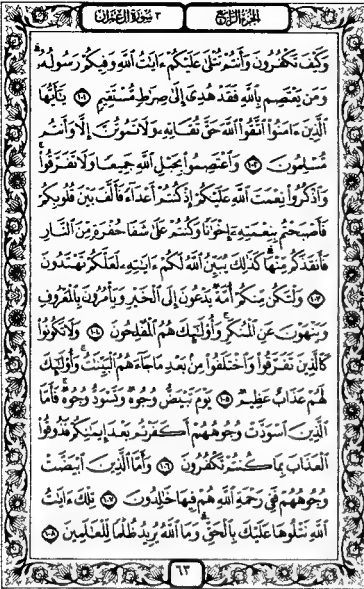 الجزء الرابع
٣ سورة آل عمران
وَكَيْفَ تَكْفُرُونَ وَأَنتُمْ تُتْلَىٰ عَلَيْكُمْ ءَايَٰتُ ٱللَّهِ وَفِيكُمْ رَسُولُهُۥ ۗ
وَمَن يَعْتَصِم بِٱللَّهِ فَقَدْ هُدِىَ إِلَىٰ صِرَٰطٍ مُّسْتَقِيمٍ ١٠١ يَٰٓأَيُّهَا
ٱلَّذِينَ ءَامَنُوا۟ ٱتَّقُوا۟ ٱللَّهَ حَقَّ تُقَاتِهِۦ وَلَا تَمُوتُنَّ إِلَّا وَأَنتُم
مُّسْلِمُونَ ١٠٢ وَٱعْتَصِمُوا۟ بِحَبْلِ ٱللَّهِ جَمِيعًا وَلَا تَفَرَّقُوا۟ ۚ
وَٱذْكُرُوا۟ نِعْمَتَ ٱللَّهِ عَلَيْكُمْ إِذْ كُنتُمْ أَعْدَآءً فَأَلَّفَ بَيْنَ قُلُوبِكُمْ
فَأَصْبَحْتُم بِنِعْمَتِهِۦٓ إِخْوَٰنًا وَكُنتُمْ عَلَىٰ شَفَا حُفْرَةٍ مِّنَ ٱلنَّارِ
فَأَنقَذَكُم مِّنْهَا ۗ كَذَٰلِكَ يُبَيِّنُ ٱللَّهُ لَكُمْ ءَايَٰتِهِۦ لَعَلَّكُمْ تَهْتَدُونَ
١٠٣ وَلْتَكُن مِّنكُمْ أُمَّةٌ يَدْعُونَ إِلَى ٱلْخَيْرِ وَيَأْمُرُونَ بِٱلْمَعْرُوفِ
وَيَنْهَوْنَ عَنِ ٱلْمُنكَرِ ۚ وَأُو۟لَٰٓئِكَ هُمُ ٱلْمُفْلِحُونَ ١٠٤ وَلَا تَكُونُوا۟
كَٱلَّذِينَ تَفَرَّقُوا۟ وَٱخْتَلَفُوا۟ مِنۢ بَعْدِ مَا جَآءَهُمُ ٱلْبَيِّنَٰتُ ۚ وَأُو۟لَٰٓئِكَ
لَهُمْ عَذَابٌ عَظِيمٌ ١٠٥ يَوْمَ تَبْيَضُّ وُجُوهٌ وَتَسْوَدُّ وُجُوهٌ ۚ فَأَمَّا
ٱلَّذِينَ ٱسْوَدَّتْ وُجُوهُهُمْ أَكَفَرْتُم بَعْدَ إِيمَٰنِكُمْ فَذُوقُوا۟
ٱلْعَذَابَ بِمَا كُنتُمْ تَكْفُرُونَ ١٠٦ وَأَمَّا ٱلَّذِينَ ٱبْيَضَّتْ
وُجُوهُهُمْ فَفِى رَحْمَةِ ٱللَّهِ هُمْ فِيهَا خَٰلِدُونَ ١٠٧ تِلْكَ ءَايَٰتُ
ٱللَّهِ نَتْلُوهَا عَلَيْكَ بِٱلْحَقِّ ۗ وَمَا ٱللَّهُ يُرِيدُ ظُلْمًا لِّلْعَٰلَمِينَ ١٠٨
٦٣